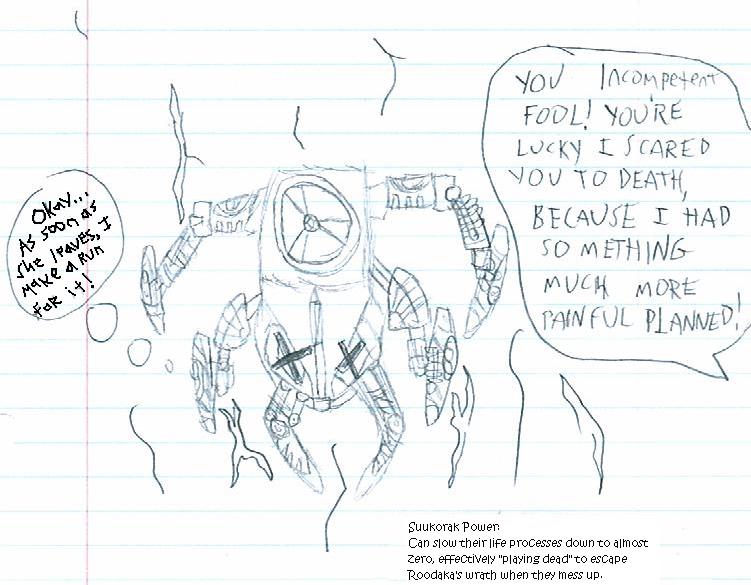 Okay...
As soon as
she leaves, I
make a run
for it!
YOU INCOMPETENT
FOOL! YOU'RE
LUCKY I SCARED
YOU TO DEATH,
BECAUSE I HAD
SOMETHING
MUCH MORE
PAINFUL PLANNED!
Suukorak Power:
Can slow their life processes down to almost
zero, effectively "playing dead" to escape
Roodaka's wrath when they mess up.